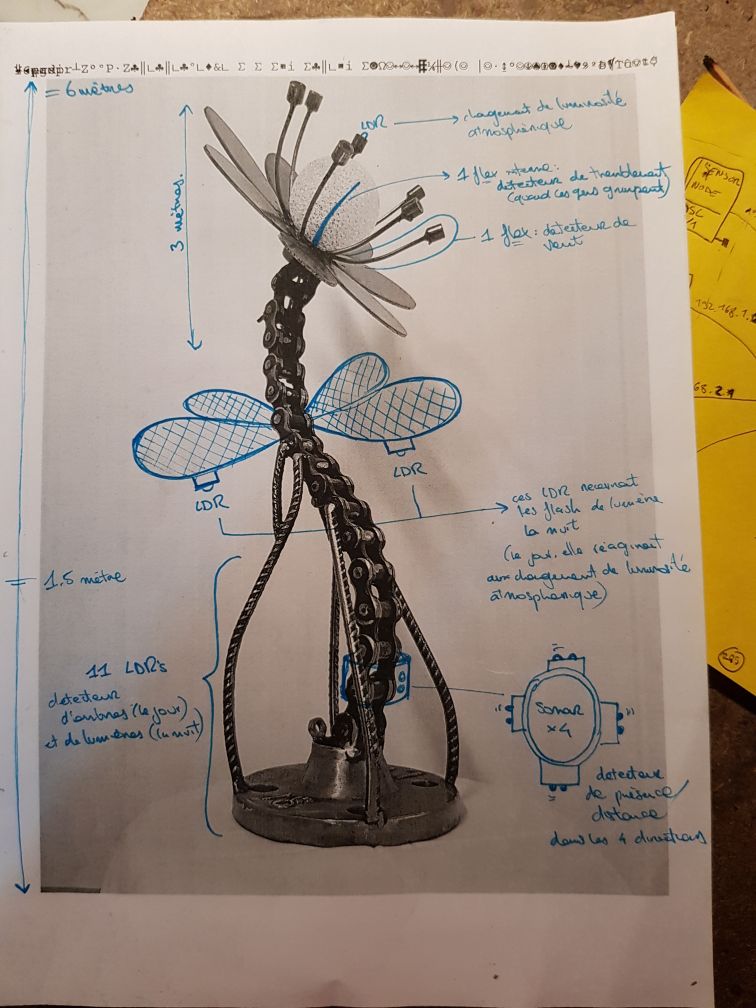 = 6 mètres
LDR
changement de luminosité
atmosphérique
3 mètres.
1 flex interne:
détecteur de tremblement
(quand les gens grimpent)
1 flex: détecteur de
vent
LDR
LDR
ces LDR reçoivent
les flash de lumière
la nuit
(le jour, elle réagiront
aux changement de luminosité
atmosphérique)
1.5 mètre
11 LDR's
détecteur
d'ombres (le jour)
et de lumières (la nuit)
Sonar
x4
détecteur
de présence/
distance
dans les 4 directions
SENSOR
NODE
OSC
192.168.1.
68.2